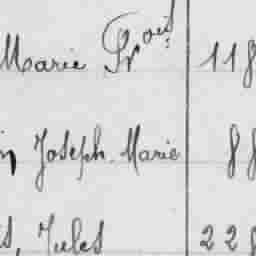 Marie Fr.ois 118
Joseph Marie 88
Jules 228